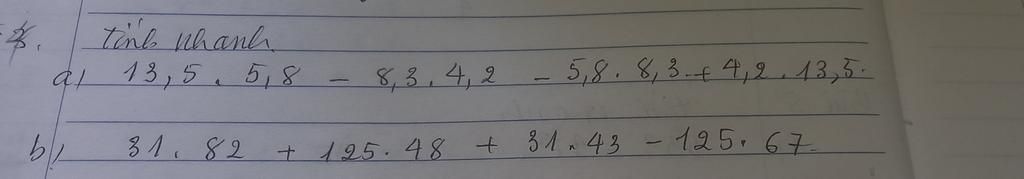 4. Tính nhanh.
a) 13,5 . 5,8 - 8,3 . 4,2 - 5,8 . 8,3 + 4,2 . 13,5.
b) 31 . 82 + 125 . 48 + 31 . 43 - 125 . 67.